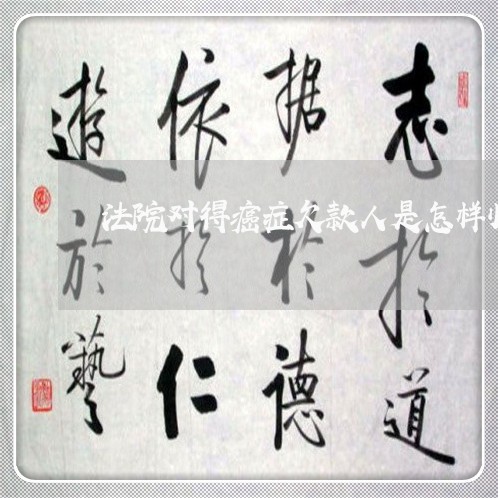 志於道
据於德
依於仁
遊於藝
法院对得癌症欠款人是怎样